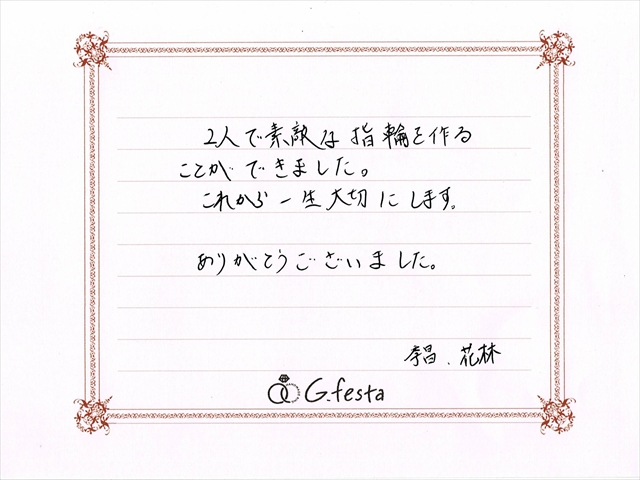 2人で素敵な指輪を作る
ことができました。
これから一生大切にします。
ありがとうございました。
李昌.花林
G.festa